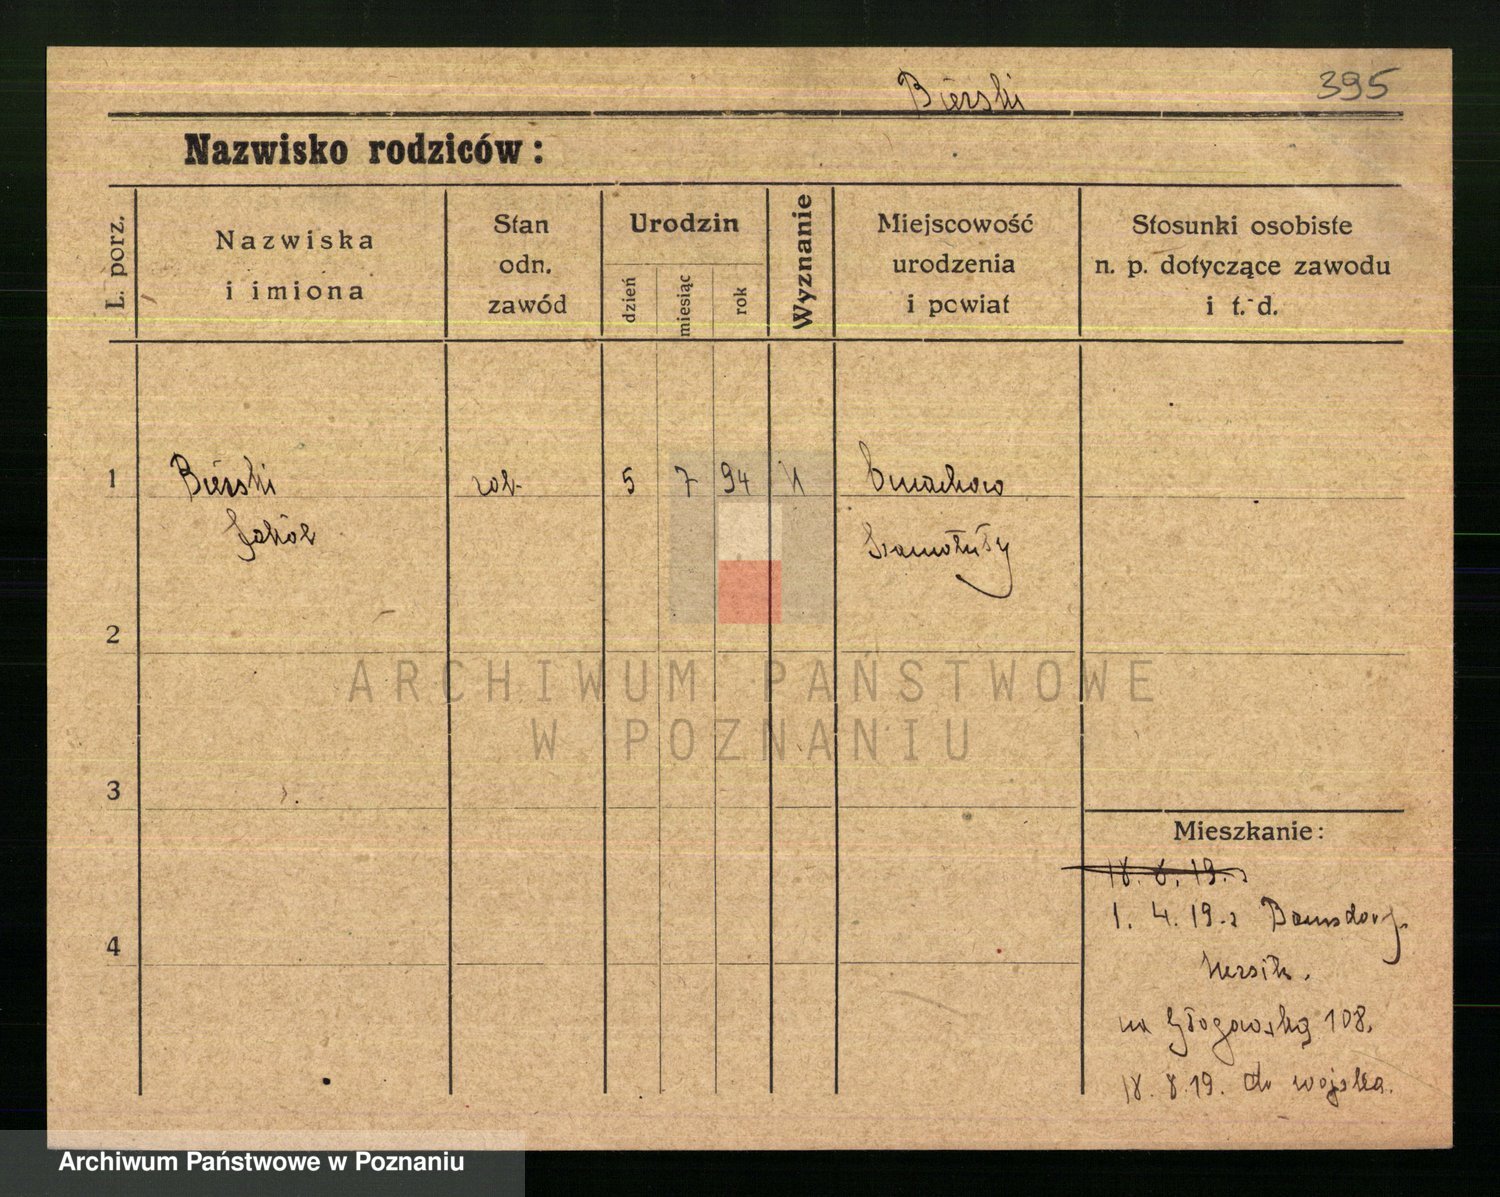 Bierski 395
Nazwisko rodziców:
L. porz.
Nazwiska
i imiona
Stan
odn.
zawód
Urodzin
dzień
miesiąc
rok
Wyznanie
Miejscowość
urodzenia
i powiat
Stosunki osobiste
n. p. dotyczące zawodu
i t. d.
1 Bierski rob 5 7 94 Ćmachowo
Jakób Szamotuły
2
ARCHIWUM PAŃSTWOWE
W POZNANIU
3
Mieszkanie:
18. 8. 19. z
1. 4. 19. z
4
na Głogowską 108.
18. 8. 19. do wojska.
Archiwum Państwowe w Poznaniu